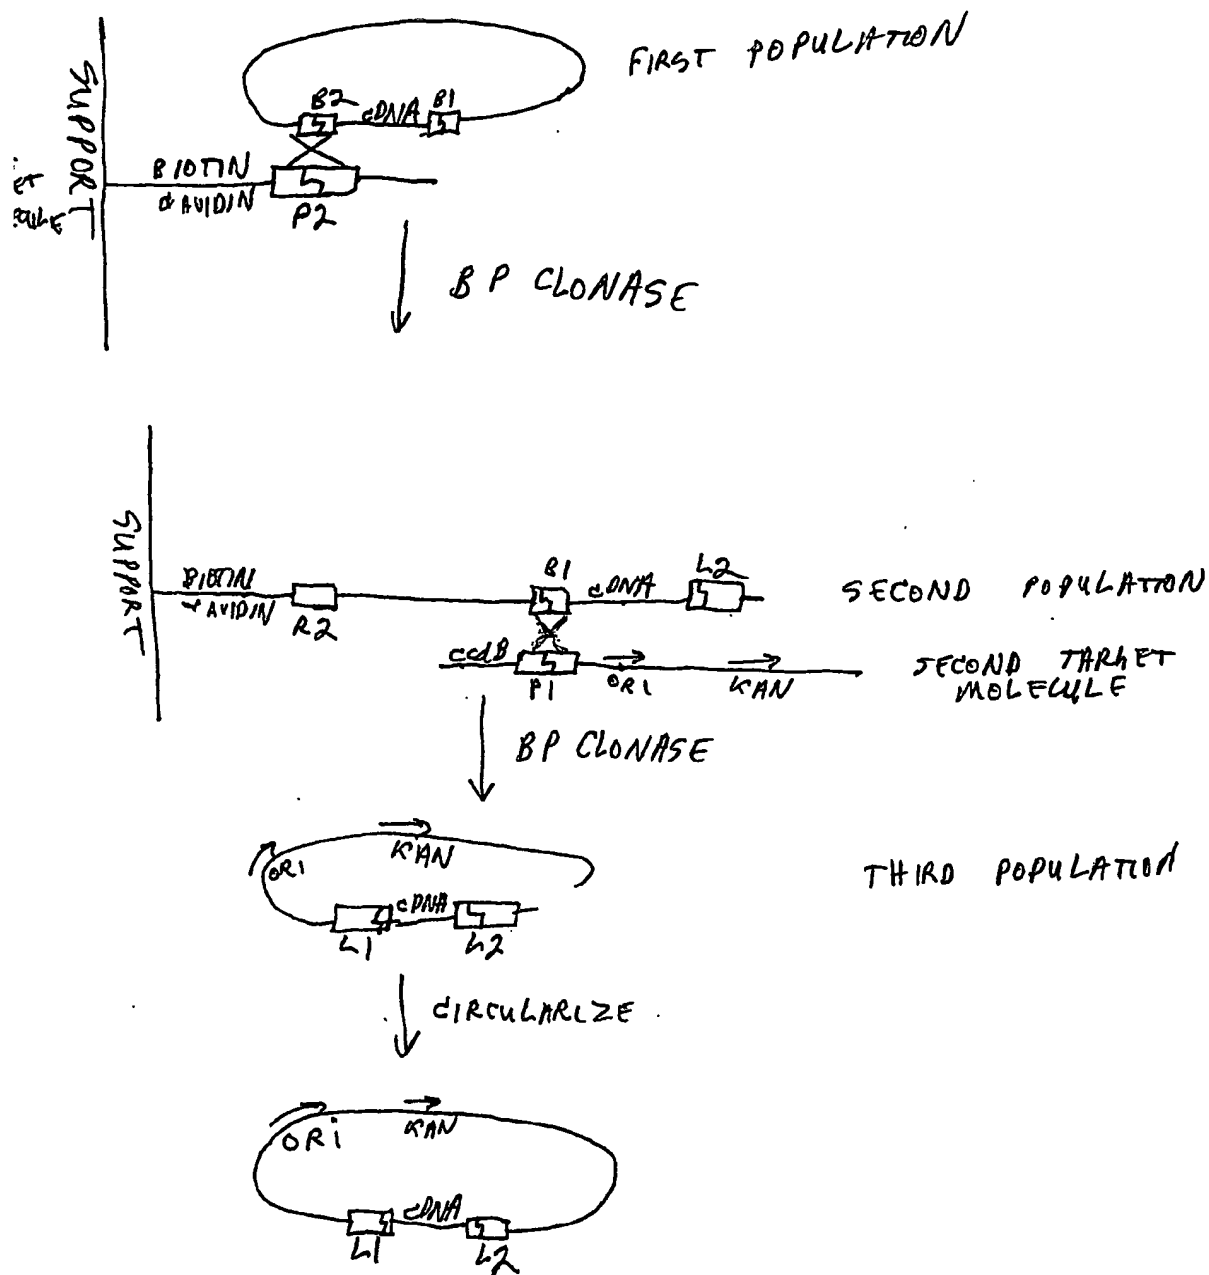 FIRST POPULATION
SUPPORT
B2 cDNA B1
BIOTIN
AVIDIN
P2
ET
BP CLONASE
SUPPORT
BIOTIN
AVIDIN
R2
B1 cDNA L2
SECOND POPULATION
ccdB P1 ORI KAN
SECOND TARGET
MOLECULE
BP CLONASE
ORI KAN
THIRD POPULATION
cDNA
L1 L2
CIRCULARIZE
ORI KAN
cDNA
L1 L2